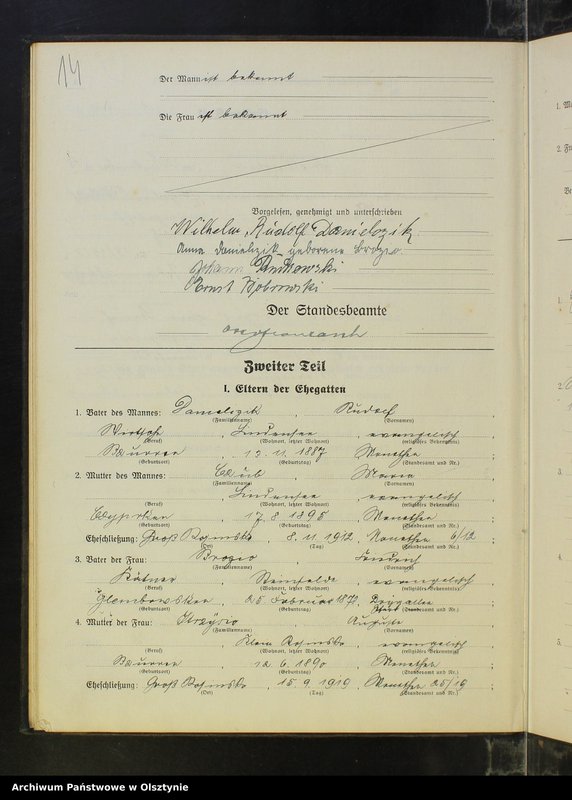 14
Der Mann ist bekannt
Die Frau ist bekannt
Vorgelesen, genehmigt und unterschrieben
Wilhelm, Rudolf Danielczik
Anna Danielczik geborene Brozio.
Johann
Ernst Bobrowski
Der Standesbeamte
Zweiter Teil
I. Eltern der Ehegatten
1. Vater des Mannes: Danielczik, Rudolf;
(Familienname) (Vornamen)
Lindensee, evangelisch
(Beruf) (Wohnort, letzter Wohnort) (religiöses Bekenntnis)
12. 11. 1887, Monethen;
(Geburtsort) (Geburtstag) (Standesamt und Nr.)
2. Mutter des Mannes: Maria
(Familienname) (Vornamen)
Lindensee, evangelisch
(Beruf) (Wohnort, letzter Wohnort) (religiöses Bekenntnis)
17. 8. 1895, Monethen;
(Geburtsort) (Geburtstag) (Standesamt und Nr.)
Eheschließung: Groß Rosinsko, 8. 11. 1912, Monethen 6/12;
(Ort) (Tag) (Standesamt und Nr.)
3. Vater der Frau: Brozio,
(Familienname) (Vornamen)
Kätner, Steinfelde, evangelisch
(Beruf) (Wohnort, letzter Wohnort) (religiöses Bekenntnis)
25. Februar
(Geburtsort) (Geburtstag) (Standesamt und Nr.)
4. Mutter der Frau: Auguste
(Familienname) (Vornamen)
Klein Rosinsko, evangelisch
(Beruf) (Wohnort, letzter Wohnort) (religiöses Bekenntnis)
12. 6. 1890, Monethen;
(Geburtsort) (Geburtstag) (Standesamt und Nr.)
Eheschließung: Groß Rosinsko, 15. 9. 1919, Monethen 25/19;
(Ort) (Tag) (Standesamt und Nr.)
Archiwum Państwowe w Olsztynie